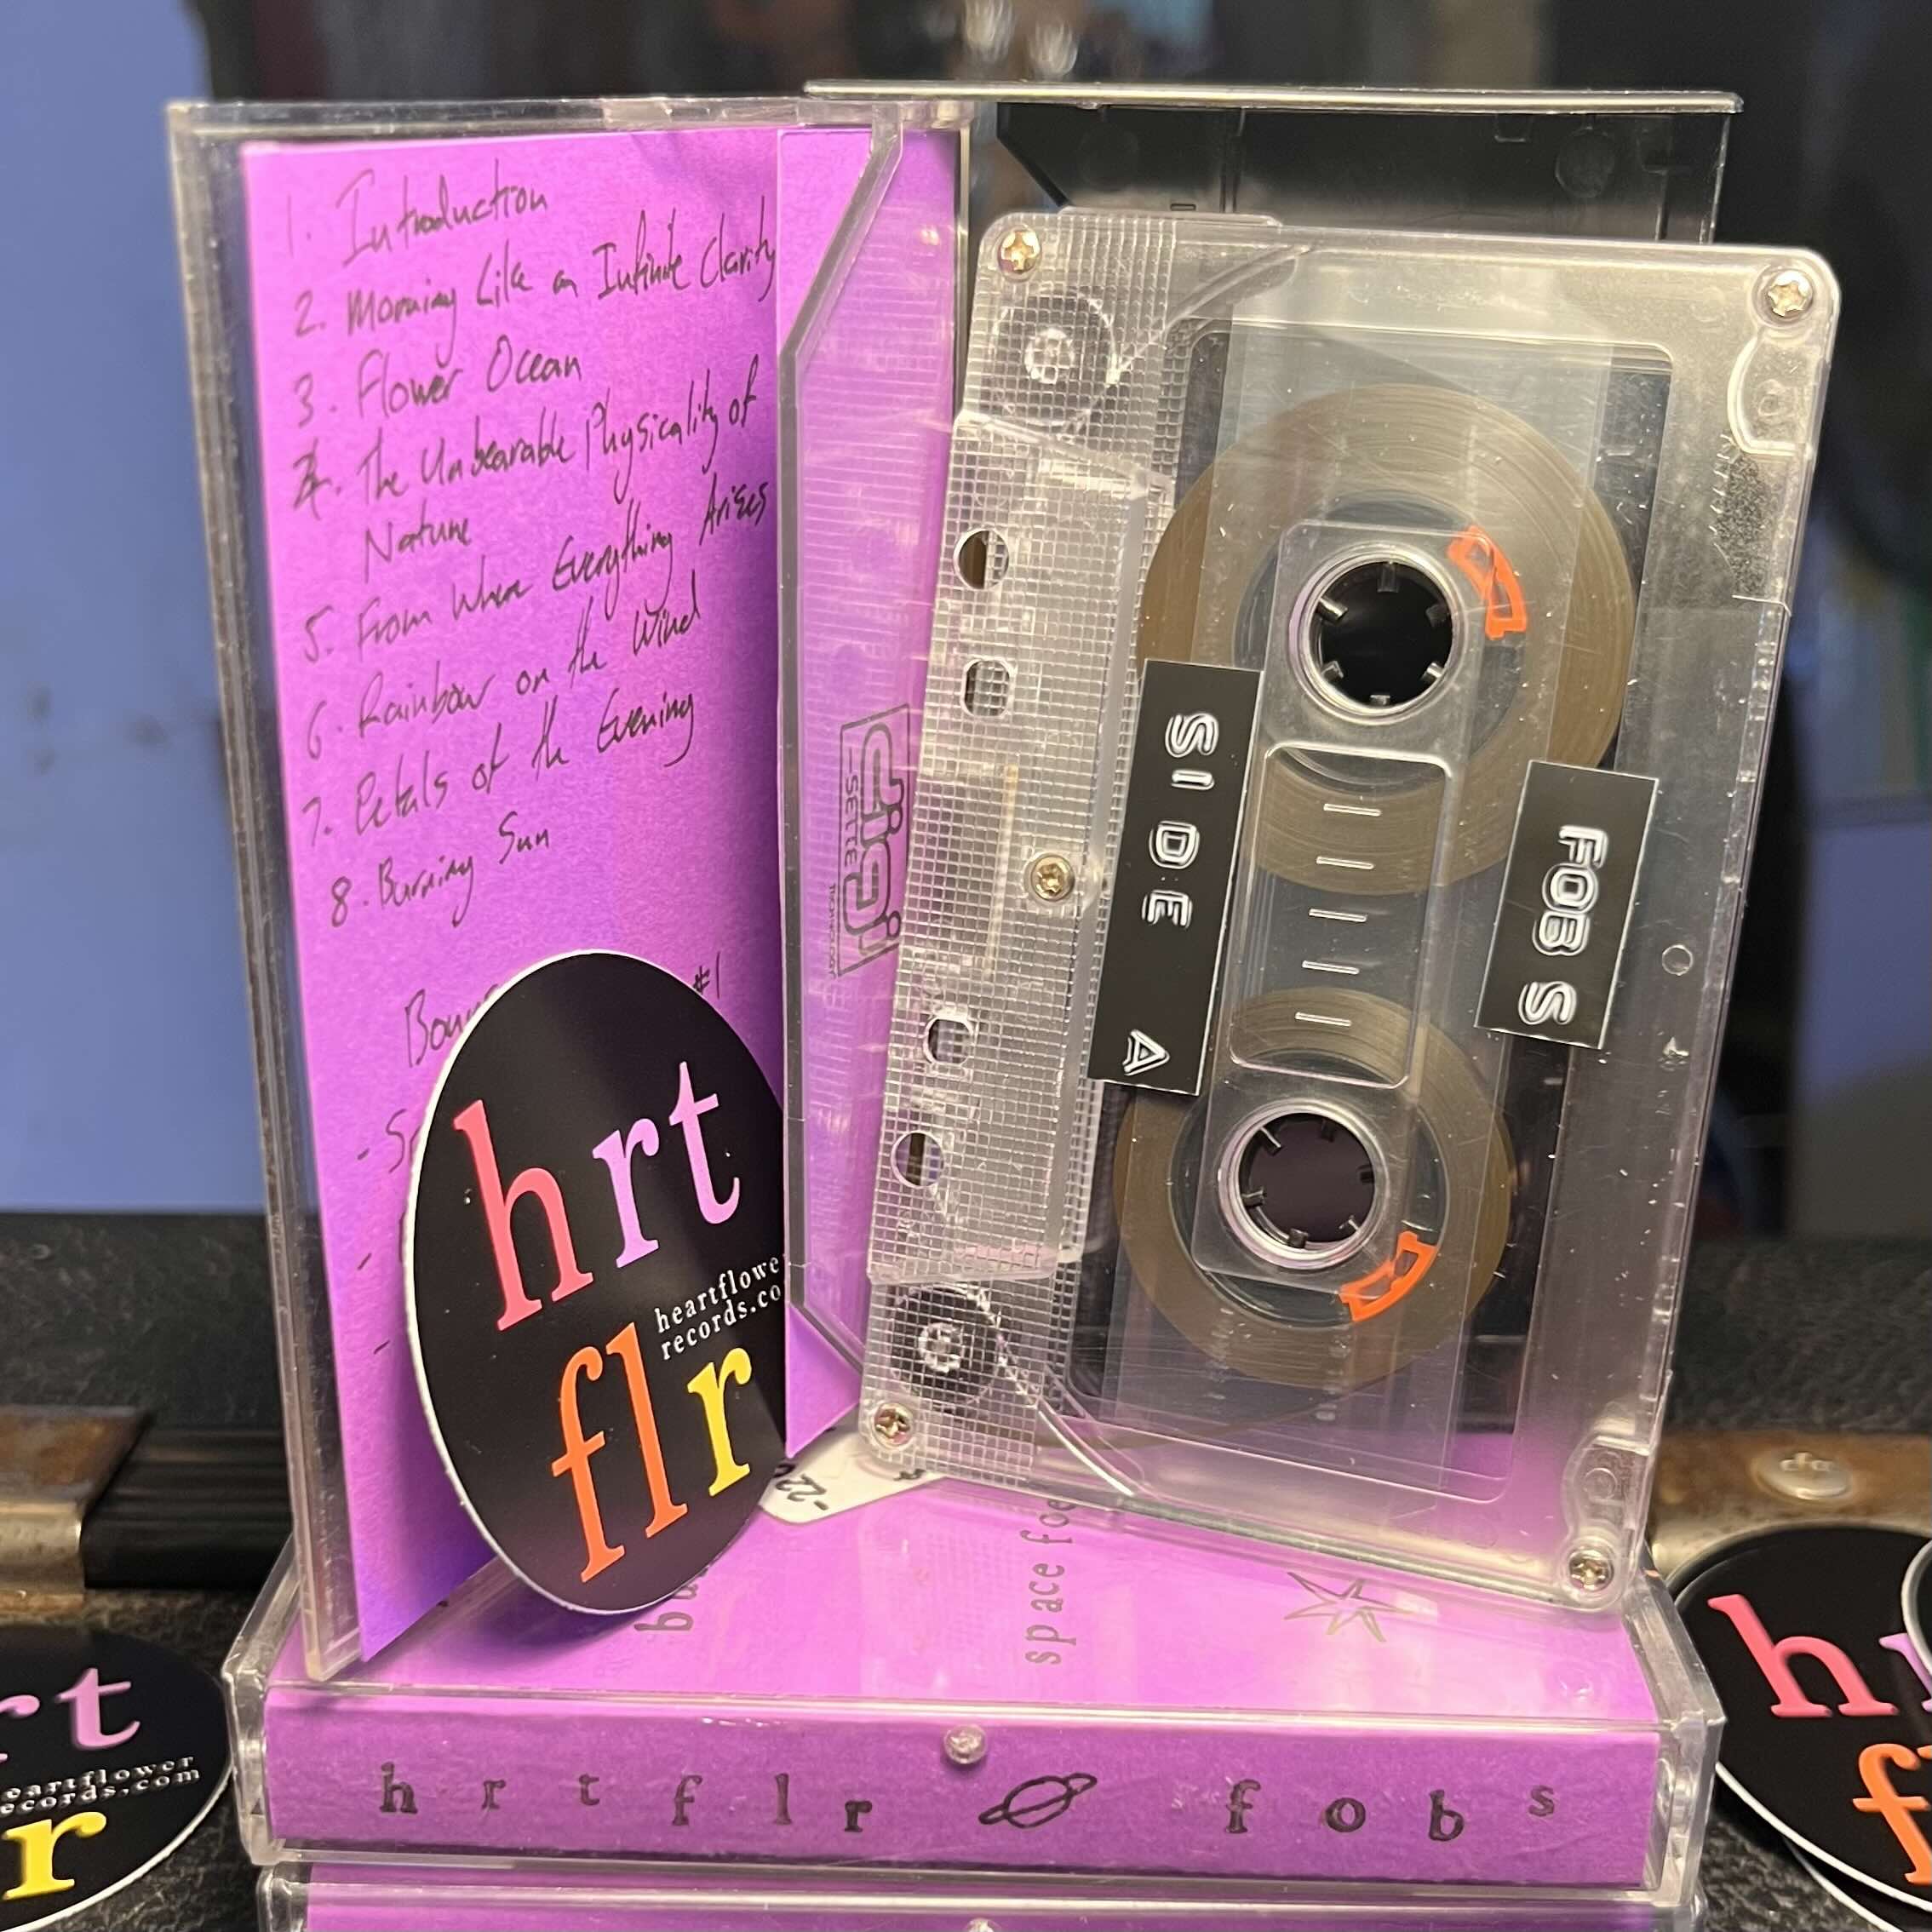 1. Introduction
2. Morning Like an Infinite Clarity
3. Flower Ocean
4. The Unbearable Physicality of
Nature
5. From Where Everything Arises
6. Rainbow on the Wind
7. Petals of the Evening
8. Burning Sun
#1
hrt
heartflowe
records.co
flr
digi
SETTE
SIDE A
FOBS
-22
space foe
hrtflr fobs
rt
eartflower
ecords.com
r
h
f